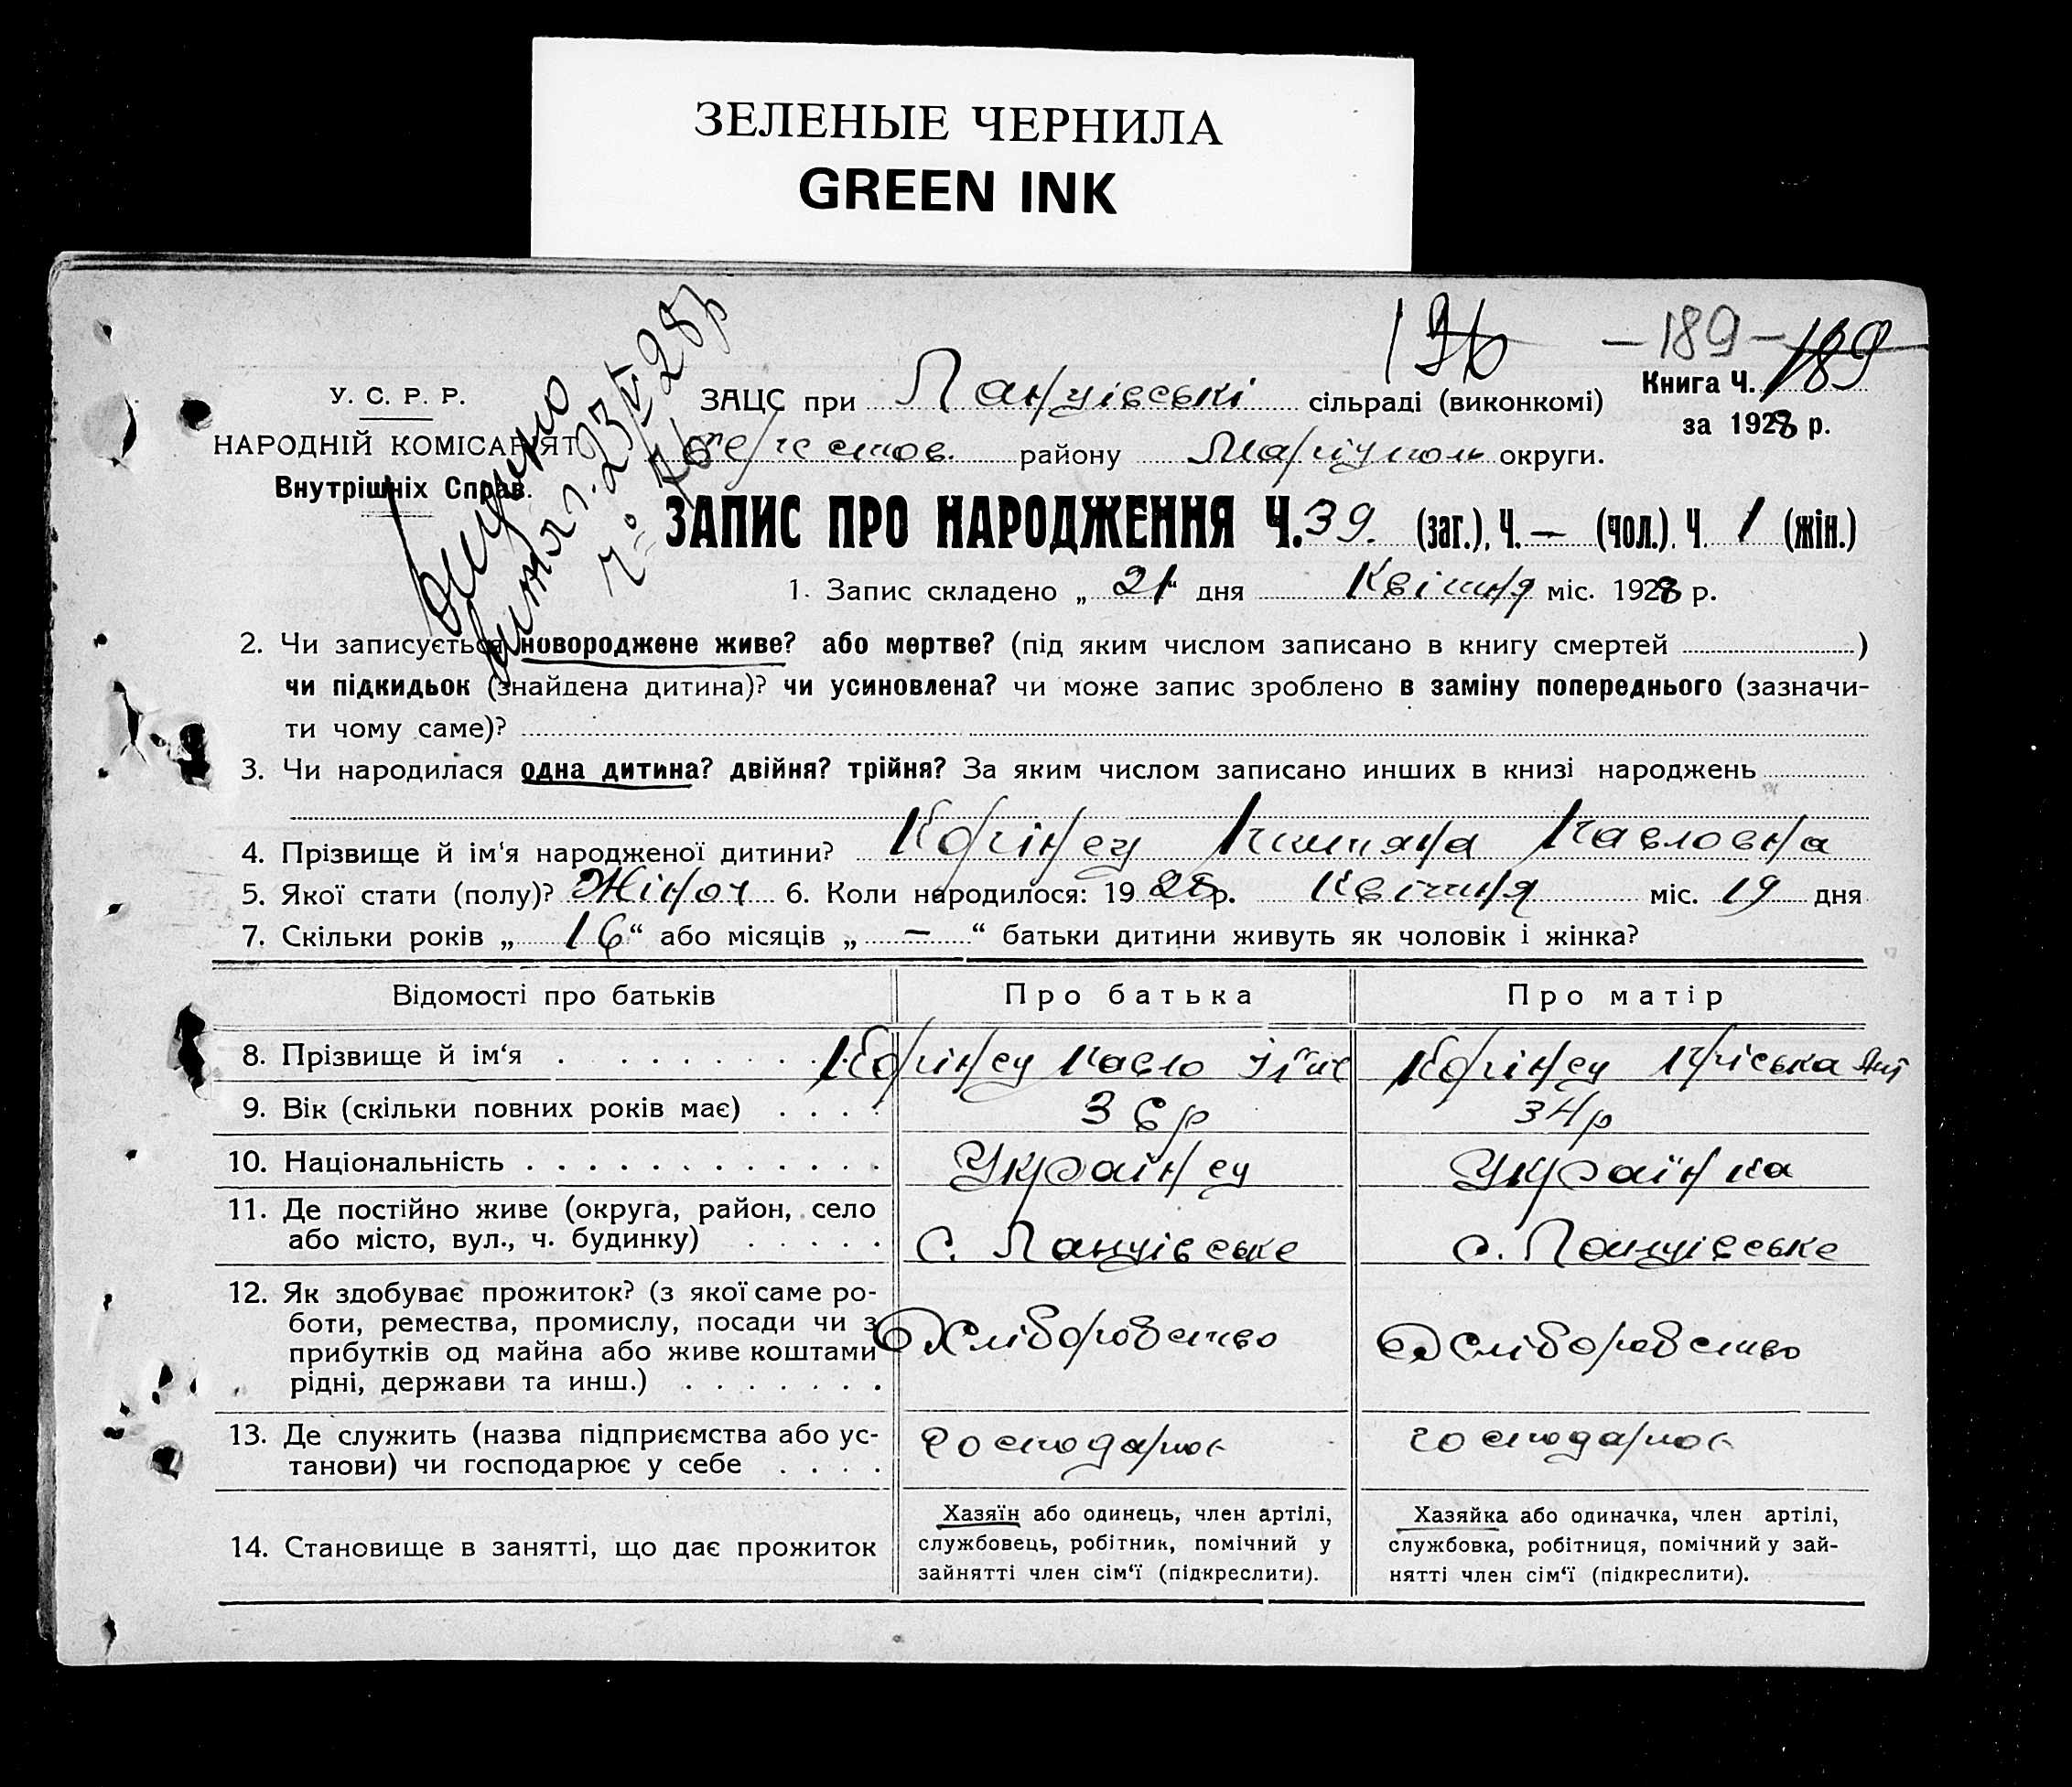 ЗЕЛЕНЫЕ ЧЕРНИЛА
GREEN INK
136
—189— 189
У. С. Р. Р.
НАРОДНІЙ КОМІСАРІЯТ
Внутрішніх Справ.
23/V-28р
ЗАЦС при сільраді (виконкомі)
Книга Ч. 189
за 1928 р.
району Маріуполь округи.
ЗАПИС ПРО НАРОДЖЕННЯ Ч. 39. (заг.), Ч. — (чол.), Ч. 1 (жін.)
1. Запис складено „ 21 “ дня Квітня міс. 1928 р.
2. Чи записується новороджене живе? або мертве? (під яким числом записано в книгу смертей )
чи підкидьок (знайдена дитина)? чи усиновлена? чи може запис зроблено в заміну попереднього (зазначи-
ти чому саме)?
3. Чи народилася одна дитина? двійня? трійня? За яким числом записано инших в книзі народжень
4. Прізвище й ім‘я народженої дитини? Корінец Титяна Павловна
5. Якої стати (полу)? Жіноч 6. Коли народилося: 1928р. Квітня міс. 19 дня
7. Скільки років „ 16 “ або місяців „ — “ батьки дитини живуть як чоловік і жінка?
Відомості про батьків Про батька Про матір
8. Прізвище й ім‘я Корінец Павло Корінец Пріська
9. Вік (скільки повних років має) 36р 34р
10. Національність Українец Українка
11. Де постійно живе (округа, район, село
або місто, вул., ч. будинку) с. Ланцівське с. Ланцівське
12. Як здобуває прожиток? (з якої саме ро-
боти, ремества, промислу, посади чи з
прибутків од майна або живе коштами
рідні, держави та инш.) Хліборобство Хліборобство
13. Де служить (назва підприємства або ус-
танови) чи господарює у себе господарює господарює
14. Становище в занятті, що дає прожиток
Хазяїн або одинець, член артілі,
службовець, робітник, помічний у
зайнятті член сім‘ї (підкреслити).
Хазяйка або одиначка, член артілі,
службовка, робітниця, помічний у зай-
нятті член сім‘ї (підкреслити).